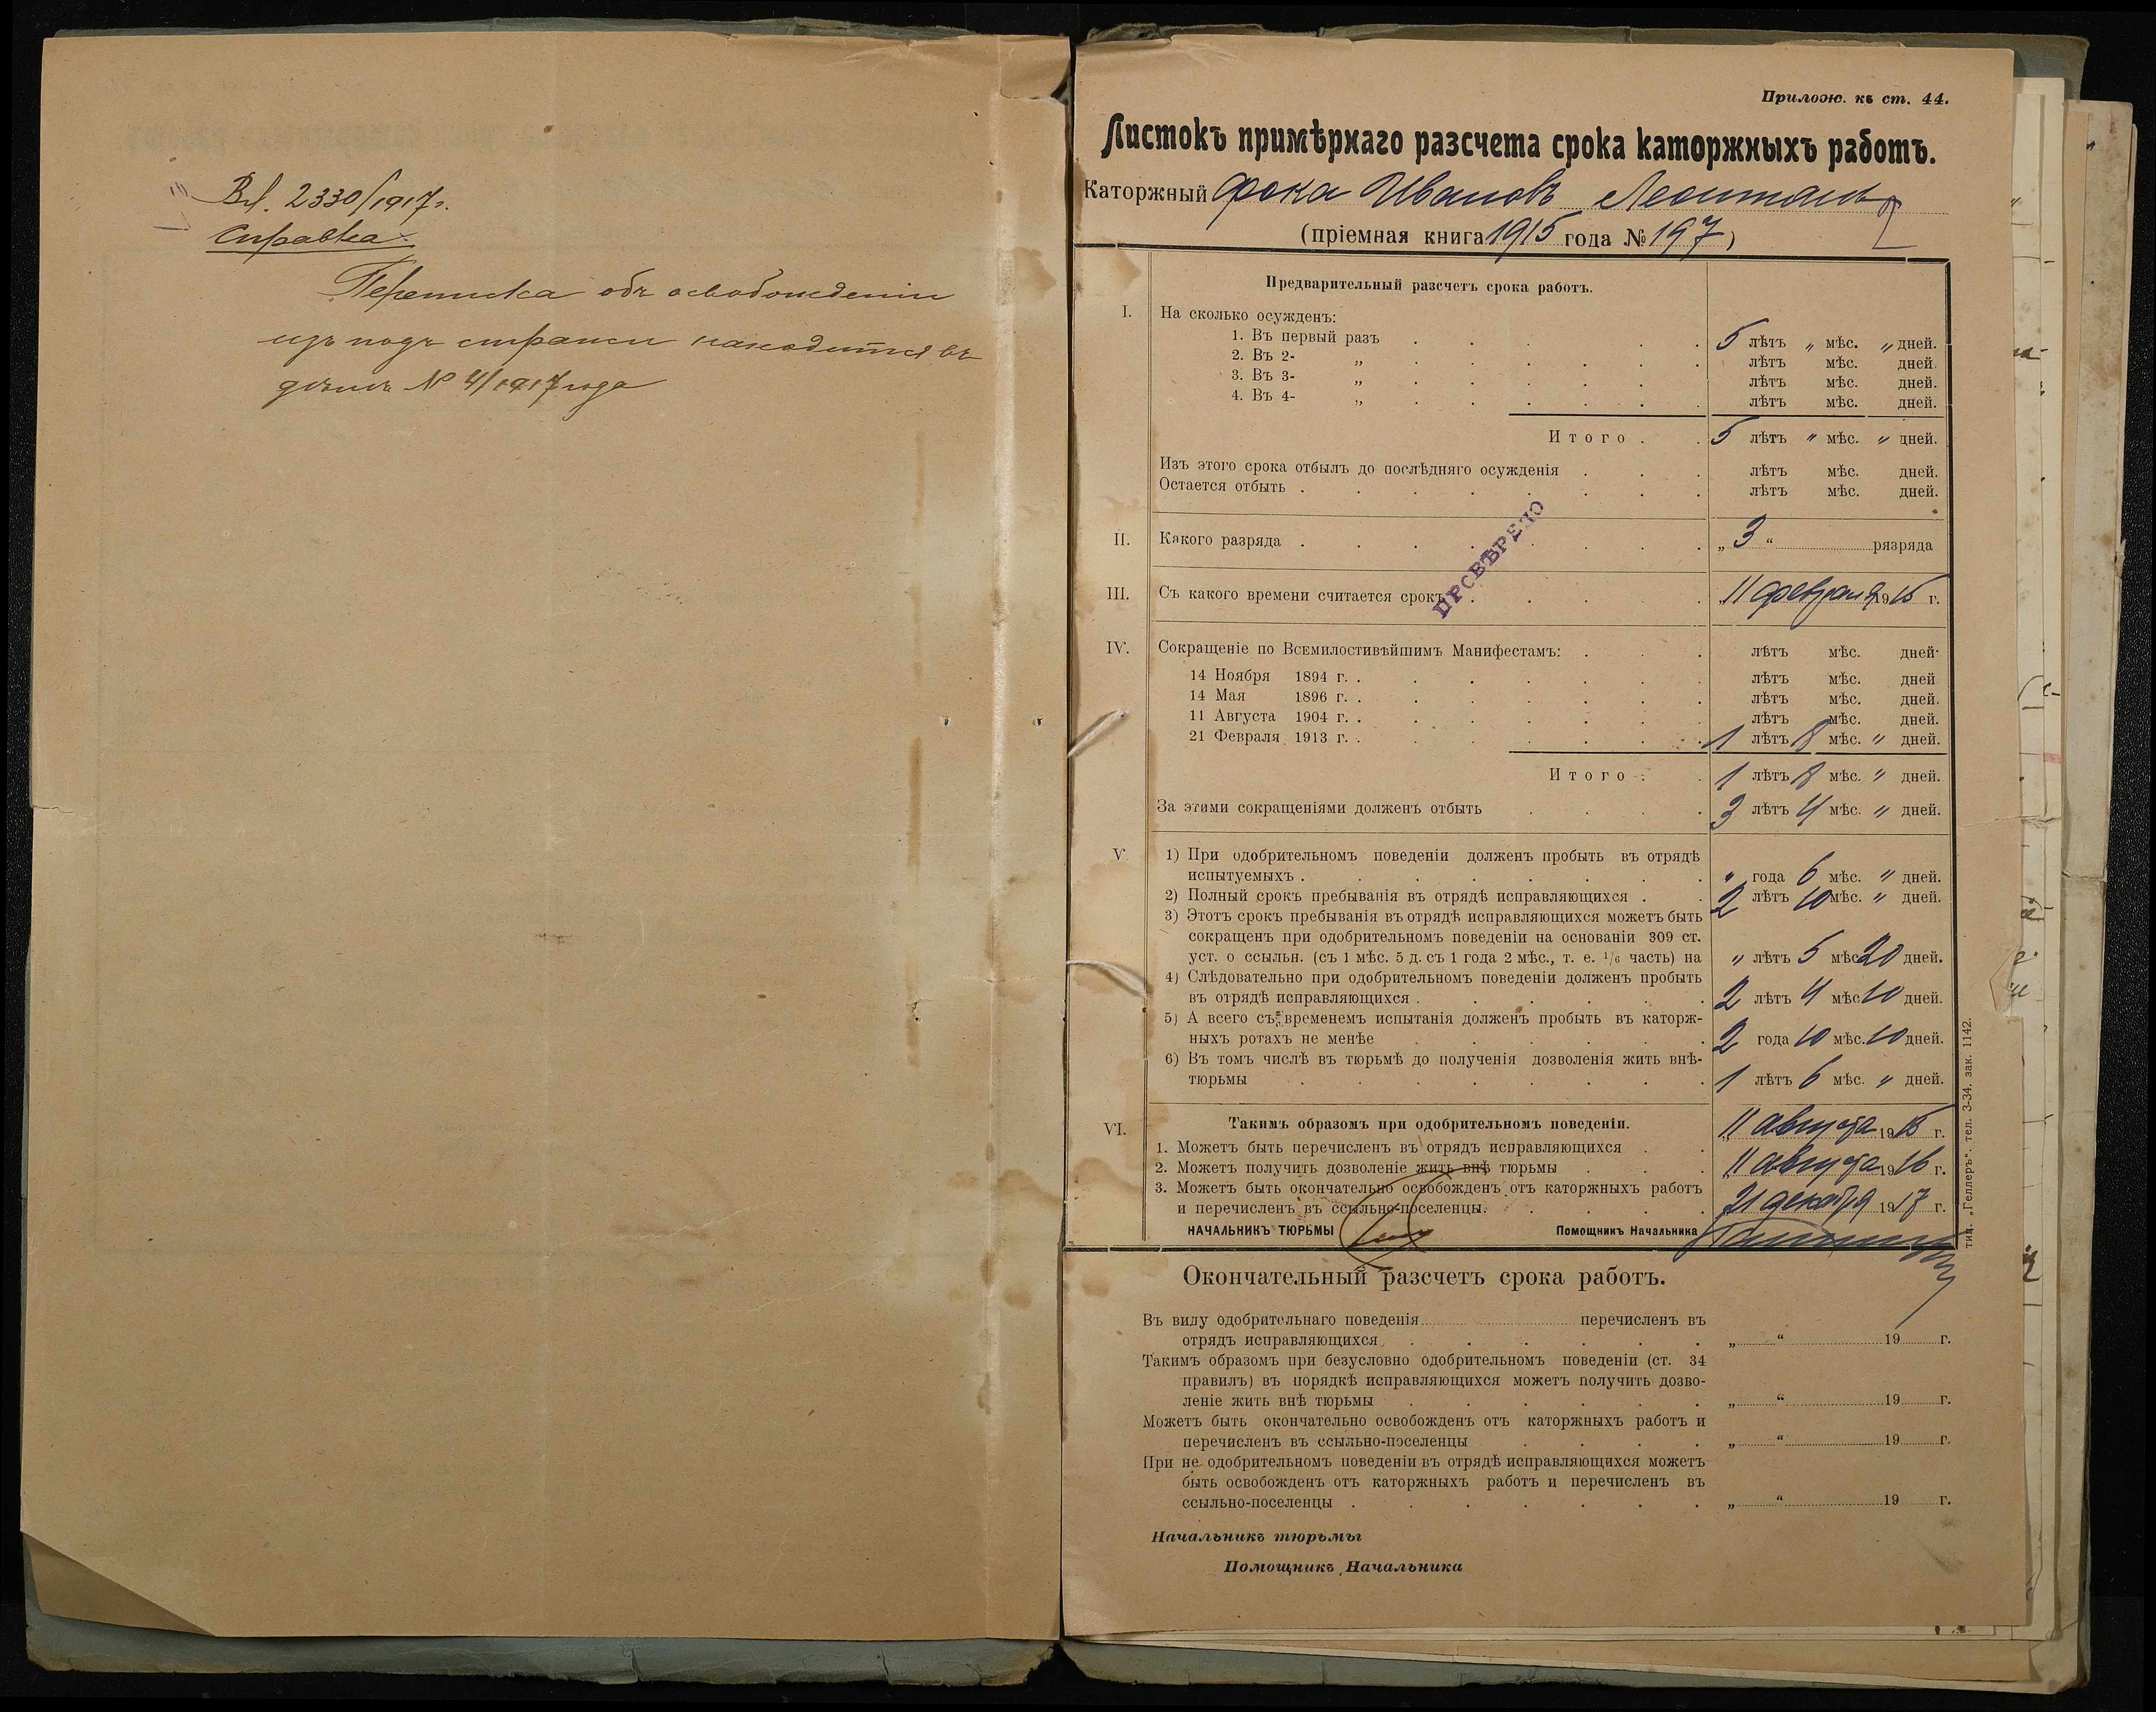 Вл. 2330/1917 г.
Справка.
Переписка объ освобожденіи
изъ подъ стражи находится въ
дѣлѣ № 4/1917 года
Прилож. къ ст. 44.
Листокъ примѣрнаго разсчета срока каторжныхъ работъ.
Каторжный Фока Ивановъ
(пріемная книга 1915 года № 197)
Предварительный разсчетъ срока работъ.
I. На сколько осужденъ:
1. Въ первый разъ . . . . . 5 лѣтъ „ мѣс. „ дней.
2. Въ 2- „ . . . . . . . лѣтъ мѣс. дней.
3. Въ 3- „ . . . . . . лѣтъ мѣс. дней.
4. Въ 4- „ . . . . . . лѣтъ мѣс. дней.
Итого . . 5 лѣтъ „ мѣс. „ дней.
Изъ этого срока отбылъ до послѣдняго осужденія . . . лѣтъ мѣс. дней.
Остается отбыть . . . . . . . . лѣтъ мѣс. дней.
ПРОВѢРЕНО
II. Какого разряда . . . . . . . . „ 3 “ рязряда
III. Съ какого времени считается срокъ . . . . . „ 11 февраля 1915 г.
IV. Сокращеніе по Всемилостивѣйшимъ Манифестамъ: . . . лѣтъ мѣс. дней.
14 Ноября 1894 г. . . . . . . . лѣтъ мѣс. дней
14 Мая 1896 г. . . . . . . . лѣтъ мѣс. дней.
11 Августа 1904 г. . . . . . . . лѣтъ мѣс. дней.
21 Февраля 1913 г. . . . . . . . 1 лѣтъ 8 мѣс. „ дней.
Итого . . 1 лѣтъ 8 мѣс. „ дней.
За этими сокращеніями долженъ отбыть . . . . 3 лѣтъ 4 мѣс. „ дней.
V 1) При одобрительномъ поведеніи долженъ пробыть въ отрядѣ
испытуемыхъ . . . . . . . . „ года 6 мѣс. „ дней.
2) Полный срокъ пребыванія въ отрядѣ исправляющихся . . 2 лѣтъ 10 мѣс. „ дней.
3) Этотъ срокъ пребыванія въ отрядѣ исправляющихся можетъ быть
сокращенъ при одобрительномъ поведеніи на основаніи 309 ст.
уст. о ссыльн. (съ 1 мѣс. 5 д. съ 1 года 2 мѣс., т. е. 1/6 часть) на „ лѣтъ 5 мѣс 20 дней.
4) Слѣдовательно при одобрительномъ поведеніи долженъ пробыть
въ отрядѣ исправляющихся . . . . . . 2 лѣтъ 4 мѣс 10 дней.
5) А всего съ временемъ испытанія долженъ пробыть въ каторж-
ныхъ ротахъ не менѣе . . . . . . 2 года 10 мѣс. 10 дней.
6) Въ томъ числѣ въ тюрьмѣ до полученія дозволенія жить внѣ-
тюрьмы . . . . . . . . 1 лѣтъ 6 мѣс. „ дней.
VI. Такимъ образомъ при одобрительномъ поведеніи.
1. Можетъ быть перечисленъ въ отрядъ исправляющихся . . „ 11 августа 1915 г.
2. Можетъ получить дозволеніе жить внѣ тюрьмы . . . „ 11 августа 1916 г.
3. Можетъ быть окончательно освобожденъ отъ каторжныхъ работъ
и перечисленъ въ ссыльно-поселенцы. . . . . 21 декабря 1917 г.
НАЧАЛЬНИКЪ ТЮРЬМЫ Помощникъ Начальника
тип. „Геллеръ“. тел. 3-34. зак. 1142.
Окончательный разсчетъ срока работъ.
Въ виду одобрительнаго поведенія перечисленъ въ
отрядъ исправляющихся . . . . . . „ “ 19 г.
Такимъ образомъ при безусловно одобрительномъ поведеніи (ст. 34
правилъ) въ порядкѣ исправляющихся можетъ получить дозво-
леніе жить внѣ тюрьмы . . . . . . „ “ 19 г.
Можетъ быть окончательно освобожденъ отъ каторжныхъ работъ и
перечисленъ въ ссыльно-поселенцы . . . . „ “ 19 г.
При не одобрительномъ поведеніи въ отрядѣ исправляющихся можетъ
быть освобожденъ отъ каторжныхъ работъ и перечисленъ въ
ссыльно-поселенцы . . . . . . . „ “ 19 г.
Начальникъ тюрьмы
Помощникъ Начальника